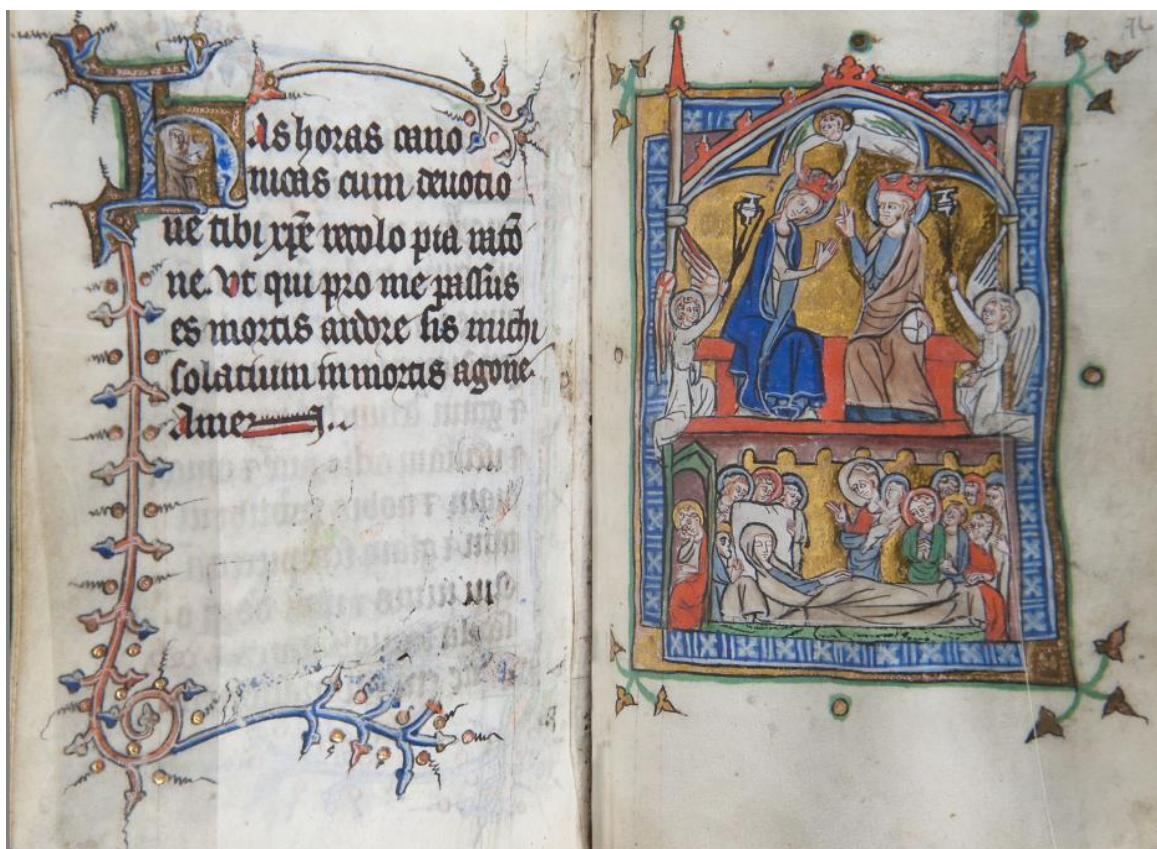 Has horas cano
nicas cum deuotio
ne tibi xp̄e recolo pia racō
ne. Vt qui pro me passus
es mortis andore sis michi
solacium in mortis agone.
Amen